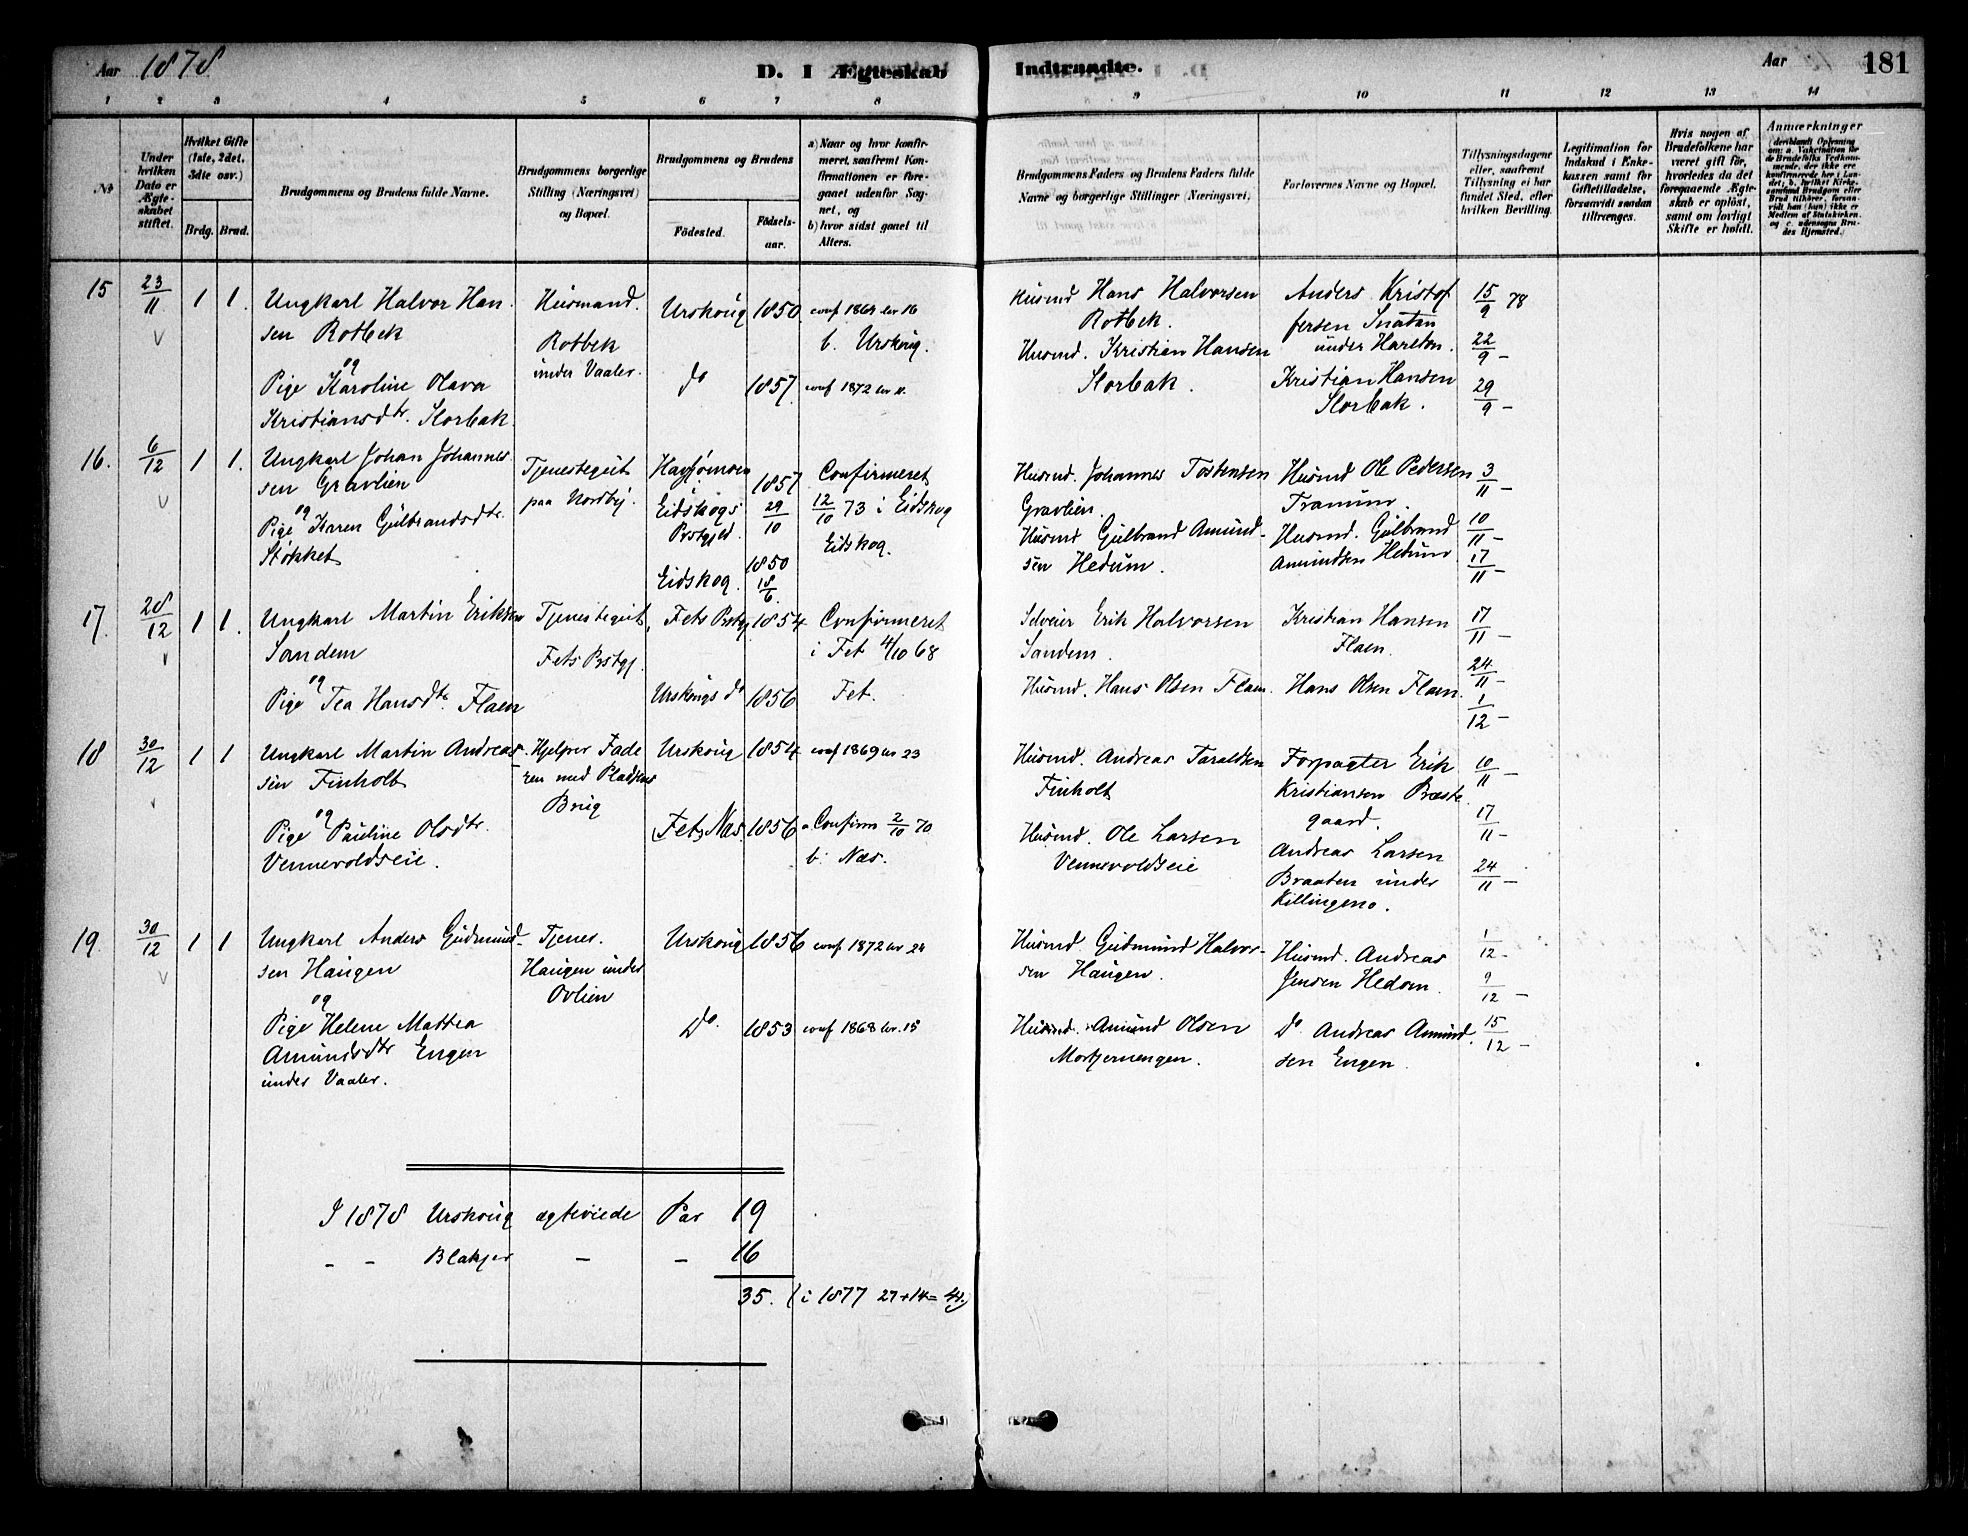 Aar 1878
D. I Ægteskab Indtraadte.
Aar
181
1 2 3 4 5 6 7 8 9 10 11 12 13 14
No
Under hvilken Dato er Ægteskabet stiftet.
Hvilket Gifte (1ste, 2det, 3dte osv.)
Brdg. Brud.
Brudgommens og Brudens fulde Navne.
Brudgommens borgerlige Stilling (Næringsvei) og Bopæl.
Brudgommens og Brudens
Födested.
Födselsaar.
a) Naar og hvor konfirmeret, saafremt Konfirmationen er foregaaet udenfor Sognet, og
b) hvor sidst gaaet til Alters.
Brudgommens Faders og Brudens Faders fulde Navne og borgerlige Stillinger (Næringsvei)
Forlovernes Navne og Bopæl.
Tillysningsdagene eller, saafremt Tillysning ei har fundet Sted, efter hvilken Bevilling.
Legitimation for Indskud i Enkekassen samt for Giftetilladelse, forsaavidt saadan tiltrænges.
Hvis nogen af Brudefolkene har været gift för, hvorledes da det foregaaende Ægteskab er oplöst, samt om lovligt Skifte er holdt.
Anmærkninger
15 23/11 1 1.
Ungkarl Halvor Han
sen Rotbek
og
Pige Karoline Olava
Kristiansdtr Slorbak
Husmand.
Rotbek
under Vaaler.
Urskoug 1850. conf 1864 nr 16
b. Urskoug.
do 1857. conf 1872 nr 11.
Husmd Hans Halvorsen
Rotbek.
Husmd. Kristian Hansen
Slorbak.
Anders Kristof
fersen
under
Kristian Hansen
Slorbak.
15/9 78
22/9 –
29/9 –
16. 6/12 1 1.
Ungkarl Johan Johannes
sen Gravlien
og
Pige Karen Gulbrandsdtr.
Stokket
Tjenestegut
paa Nordby.
Eidskogs
Prstgjeld.
Eidskog.
1857
29/10
1850
18/6
Confirmeret
12/10 73 i Eidskog
Eidskog.
Husmd. Johannes Tostensen
Gravlien.
Husmd Gulbrand Amund
sen Hedum.
Husmd Ole Pedersen
Husmd. Gulbrand
Amundsen Hedum
3/11 –
10/11 –
17/11 –
17. 28/12 1 1.
Ungkarl Martin Eriksen
Sandem
og
Pige Tea Hansdtr. Flaen
Tjenestegut,
Fets Prstgj.
Fets Prstgj 1854
Urskougs do 1856
Confirmeret
i Fet 4/10 68
Fet.
Selveier Erik Halvorsen
Sandem.
Husmd. Hans Olsen Flaen.
Kristian Hansen
Flaen.
Hans Olsen Flaen.
17/11 –
24/11 –
1/12 –
18 30/12 1 1
Ungkarl Martin Andreas
sen Finholt
og
Pige Pauline Olsdtr.
Vennevoldseie.
Hjelper Fade
ren med Pladsens
Brug
Urskoug 1854 conf 1869 nr 23
Fets Næs. 1856 a. Confirm 2/10 70
b. Næs.
Husmd. Andreas Taraldsen
Finholt
Husmd. Ole Larsen
Vennevoldseie
Forpagter Erik
Kristiansen Præste
gaard.
Andreas Larsen
Braaten under
Killingmo.
10/11 –
17/11 –
24/11 –
19. 30/12 1 1
Ungkarl Anders Gudmund
sen Haugen
og
Pige Helene Mattea
Amundsdtr Engen
under Vaaler.
Tjener.
Haugen under
Ovlien
Urskoug 1856 conf 1872 nr 24
Do. 1853 conf 1868 nr. 15
Husmd. Gudmund Halvor
sen Haugen.
Husmd. Amund Olsen
Husmd. Andreas
Jensen Hedom.
Do Andreas Amund
sen Engen.
1/12 –
9/12 –
15/12 –
I 1878 Urskoug ægteviede Par 19
– – Blakjer – – 16
35. (i 1877 27+14=41)